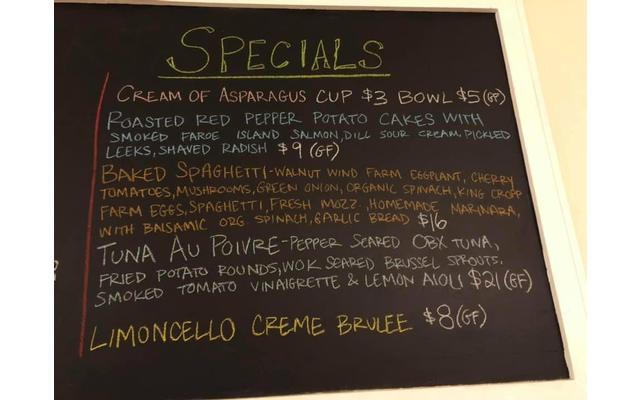 SPECIALS
CREAM OF ASPARAGUS CUP $3 BOWL $5 (GF)
ROASTED RED PEPPER POTATO CAKES WITH
SMOKED FAROE ISLAND SALMON, DILL SOUR CREAM, PICKLED
LEEKS, SHAVED RADISH $9 (GF)
BAKED SPAGHETTI-WALNUT WIND FARM EGGPLANT, CHERRY
TOMATOES, MUSHROOMS, GREEN ONION, ORGANIC SPINACH, KING CROPP
FARM EGGS, SPAGHETTI, FRESH MOZZ. HOMEMADE MARINARA,
WITH BALSAMIC ORG. SPINACH, GARLIC BREAD $16
TUNA AU POIVRE-PEPPER SEARED OBX TUNA,
FRIED POTATO ROUNDS, WOK SEARED BRUSSEL SPROUTS,
SMOKED TOMATO VINAIGRETTE & LEMON AIOLI $21 (GF)
LIMONCELLO CREME BRULEE $8 (GF)